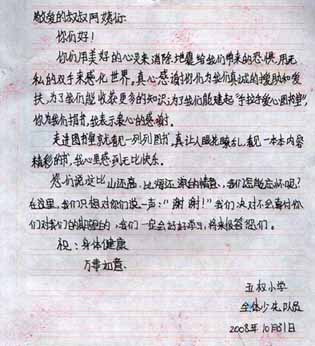 敬爱的叔叔阿姨们:
你们好!
你们用美好的心灵来消除地震给我们带来的恐惧,用无
私的双手来感化世界。真心感谢你们为我们真诚的援助和爱
扶,为了我们能收获更多的知识;为了我们能建起"手拉手爱心图书室",
你为我们捐书,我表示衷心的感谢!
走进图书室就看见一列列图书,真让人眼花瞭乱,看见一本本内容
精彩的书,我心里感到无比快乐。
恩们说这比山还高、比海还深的情意,我们怎能忘怀呢?
在这里,我们只想对你们说一声:"谢谢!"我们决对不会辜付你
们对我们的期望的,我们一定会好好学习,将来报答您们。
祝:身体健康
万事如意
五权小学
全体少先队员
2008年10月31日